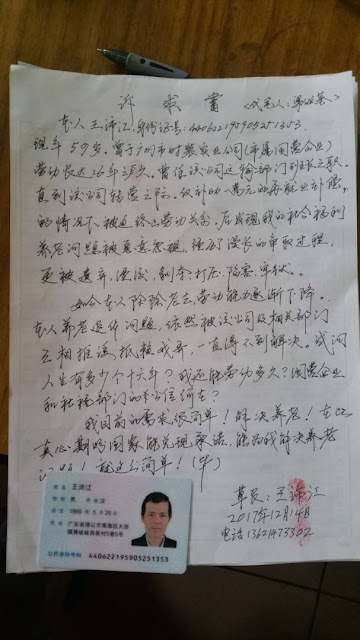 诉求书 <代笔人:
本人王沛江,身份证号:440622195905251353
现年59岁。曾于广州市时装实业公司(市属国营企业)
劳动长达16年之多。曾任该公司运输部门副班长之职。
直到该公司转营之际。仅补助一万元的再就业补偿,
的情况下被迫终止劳动关系。在发现我的社会福利
养老问题被恶意忽视,经历了漫长的争取过程,
更被遗弃、漂流、刺字、打压、陷害、牢狱。
如今本人除除老去,劳动能力逐渐下降。
本人养老退休问题,依然被该公司及相关部门
互相推诿、抵赖戏弄,一直得不到解决。试问
人生有多少个十六年?我还能劳动多久?国营企业
和社福部门的公信何在?
我目前的需求很简单!解决养老!在此
真心期盼国家能兑现承诺,能为我解决养老
就这么简单!(毕)
草民:王沛江
2017年12月14日
电话13621473302
姓名 王沛江
性别 男 民族 汉
出生 1959 年 5 月 25 日
住址 广东省佛山市南海区大沥
公民身份号码 440622195905251353